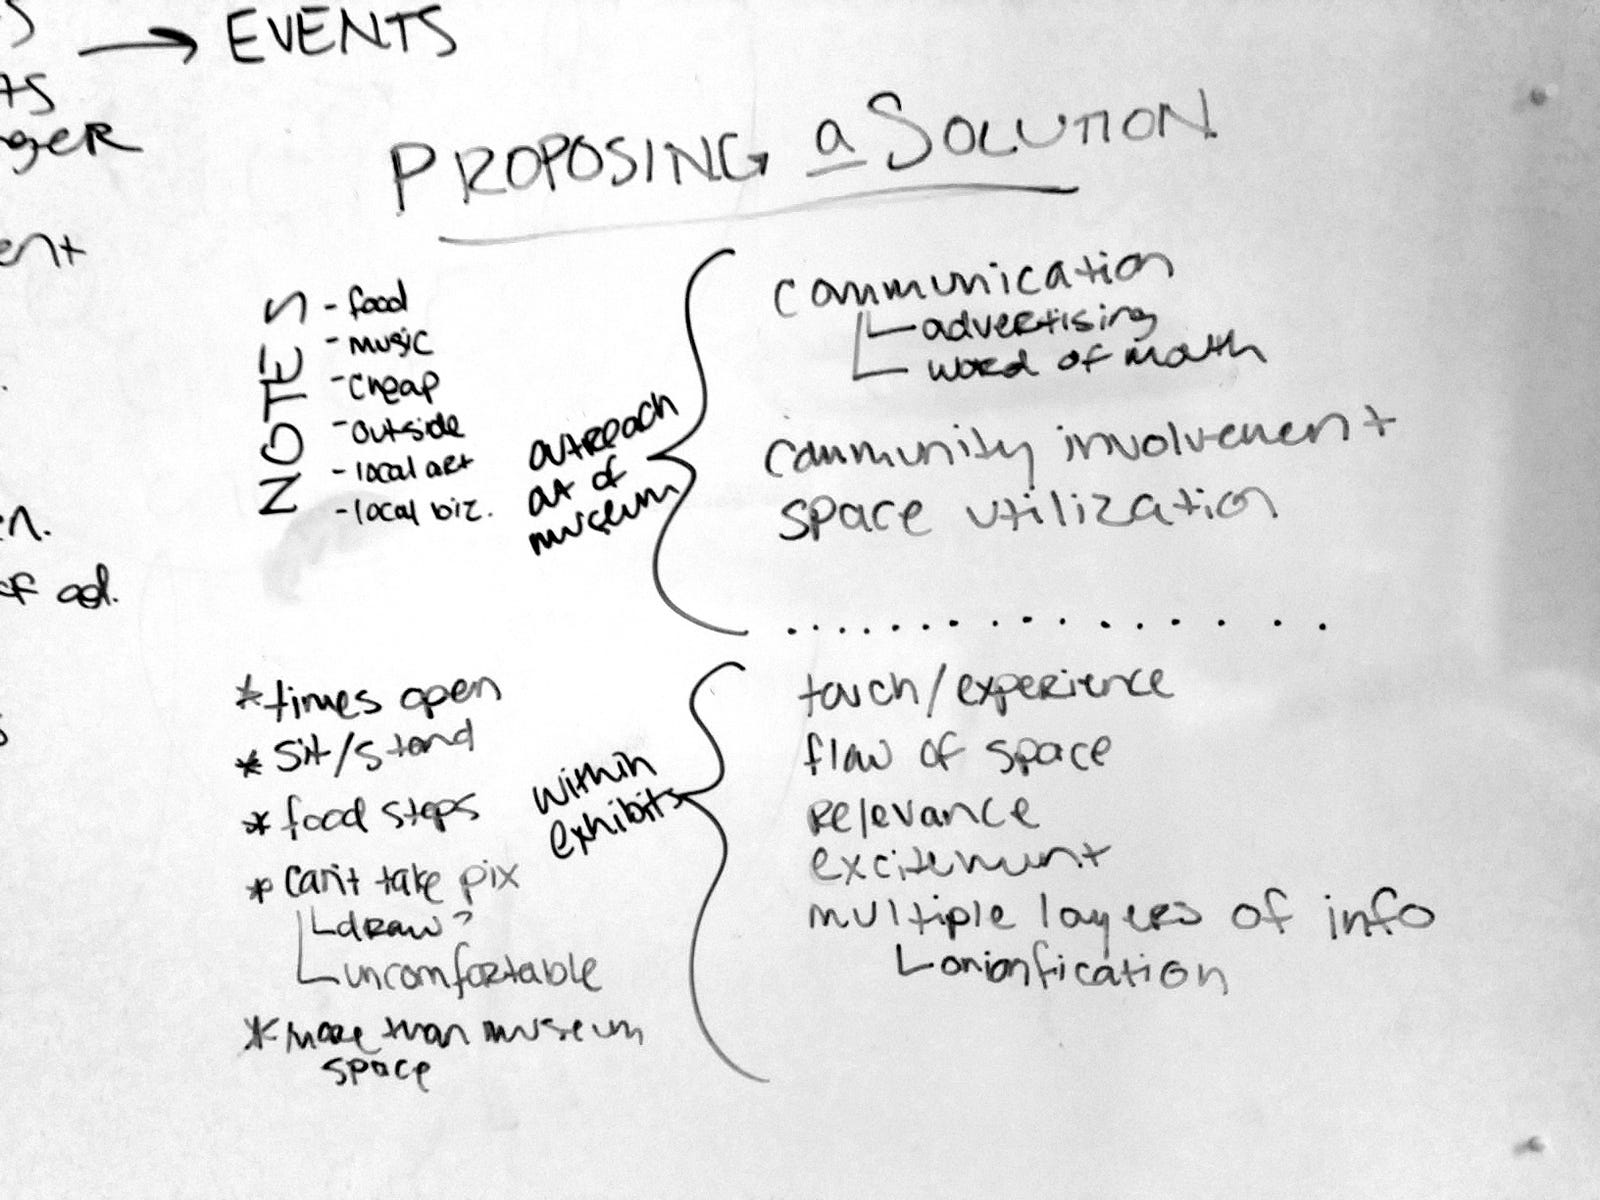 → EVENTS
PROPOSING a SOLUTION
NOTES
- food
- music
- cheap
- outside
- local art
- local biz.
outreach
out of
museum
communication
advertising
word of mouth
community involvement
space utilization
* times open
* sit/stand
* food steps
* can't take pix
draw?
uncomfortable
* more than museum
space
within
exhibits
touch/experience
flow of space
relevance
excitement
multiple layers of info
onionfication